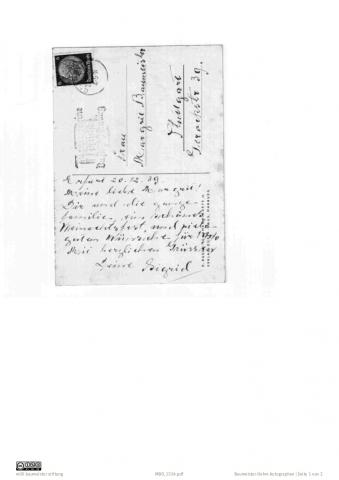 Frau
Margrit Baumeister
Stuttgart
Gerokstr. 39.
Erfurt 20.12.39
Meine liebe Margrit!
Dir und die ganze
Familie, ein schönes
Weihnachtsfest und viele
guten Wünsche für 1940
Mit herzlichen Grüssen
Deine Sigrid
willi baumeister stiftung
Baumeister-Briefe Autographen | Seite 1 von 2